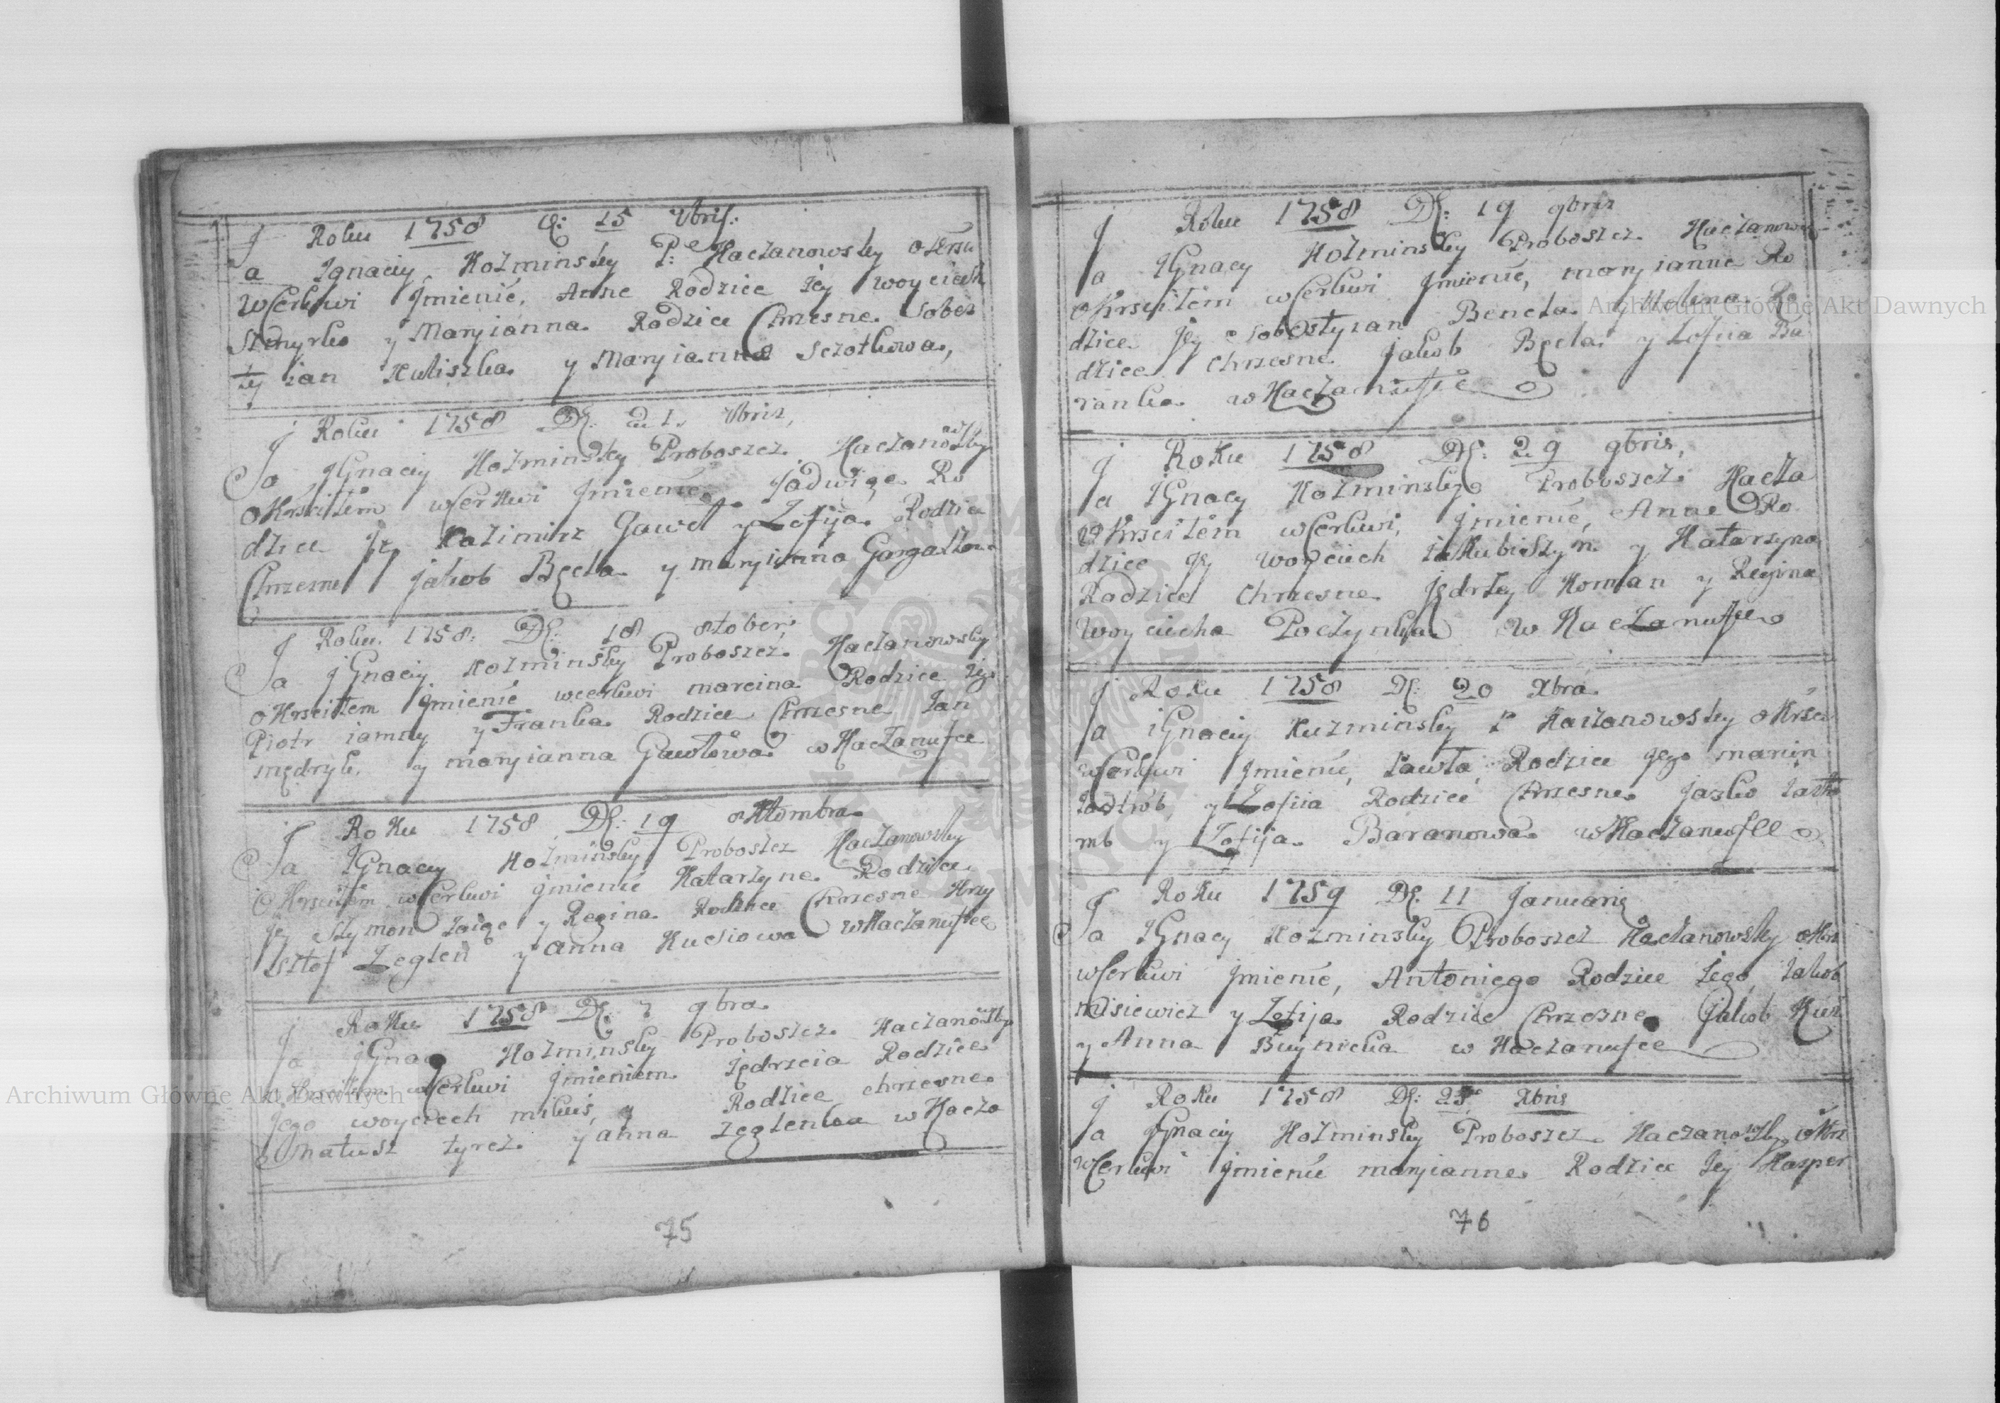 Roku 1758 D: 15 Vbris:
Ja Ignaciy Kozminsky P: Kaczanowsky
wCerkwi Jmienié, Anne Rodzice Jey woyciech
y Maryianna Rodzice Chrzesne Sobes
tyian Kuliszka y Maryianna Sczotkowa,
Roku 1758 D: 21. Vbris,
Ja JGnaciy Kozminsky Proboszcz Kaczanowsky
oKrscilem wCerkwi Jmienié Jadwige Ro
dzice Jey Kazimirz Gaweł y Zofija Rodzice
Chrzesne Jakob Bęcla y maryianna
Roku 1758: D: 18 8tober;
Ja JGnaciy Kozminsky Proboszcz Kaczanowsky
oKrscilem Jmienié wcerkwi marcina Rodzice
Piotr iamny y Franka Rodzice Chrzesne Jan
mędryk y maryianna Gawłowa wKaczanufce
RoKu 1758 D: 19 oKtombra
Ja JGnacy Kozminsky Proboszcz Kaczanowsky
oKrscilem wCerkwi Jmienié Katarzyne Rodzice
Jey Szymon y Regina Rodzice Chrzesne Krzy
sztof Zegleń y anna Kuciowa wKaczanufce
RoKu 1758 D: 7 9bra
Ja JGnacy Kozminsky Proboszcz Kaczanowsky
oKrscilem wCerkwi Jmieniem Jędrzeia Rodzice
Jego woyciech y Rodzice chrzesne
matusz tyrcz y anna zeglenka w Kacza
75
Roku 1758 D: 19 9bris
Ja JGnacy Kozminsky Proboszcz Kaczanowsky
oKrscilem wCerkwi Jmienié, maryianne Ro
dzice Jey Sobostyian Bencla y Helena Ro
dzice Chrzesne Jakob Bęcla y Zofiia Ba
ranka wKaczanufce
RoKu 1758 D: 29 9bris,
Ja JGnacy Kozminsky Proboszcz Kacza
oKrscilem wCerkwi, Jmienié, Anne Ro
dzice Jey Woyciech y Katarzyna
Rodzice Chrzesne Jędrzey Koman y Regina
Woyciecha w Kaczanufce
RoKu 1758 D: 20 Xbra
Ja iGnaciy Kuzminsky P Kaczanowsky oKrsci
wCerkwi Jmienié, Pawła, Rodzice Jego marcin
y Zofiia Rodzice Chrzesne Jasko
y Zofija Baranowa wKaczanufce
RoKu 1759 D: 11 Januarij
Ja JGnacy Kozminsky Proboszcz Kaczanowsky oKrs
wCerkwi Jmienié, Antoniego Rodzice Jego, Jakob
misiewicz y Zofija Rodzice Chrzesne Jakob
y Anna w Kaczanufce
RoKu 1758 D: 25 Xbris
Ja JGnaciy Kozminsky Proboszcz Kaczanowsky oKrs
wCerkwi Jmienié maryianne Rodzice Jey Kasper
76
Archiwum Główne Akt Dawnych
Archiwum Główne Akt Dawnych